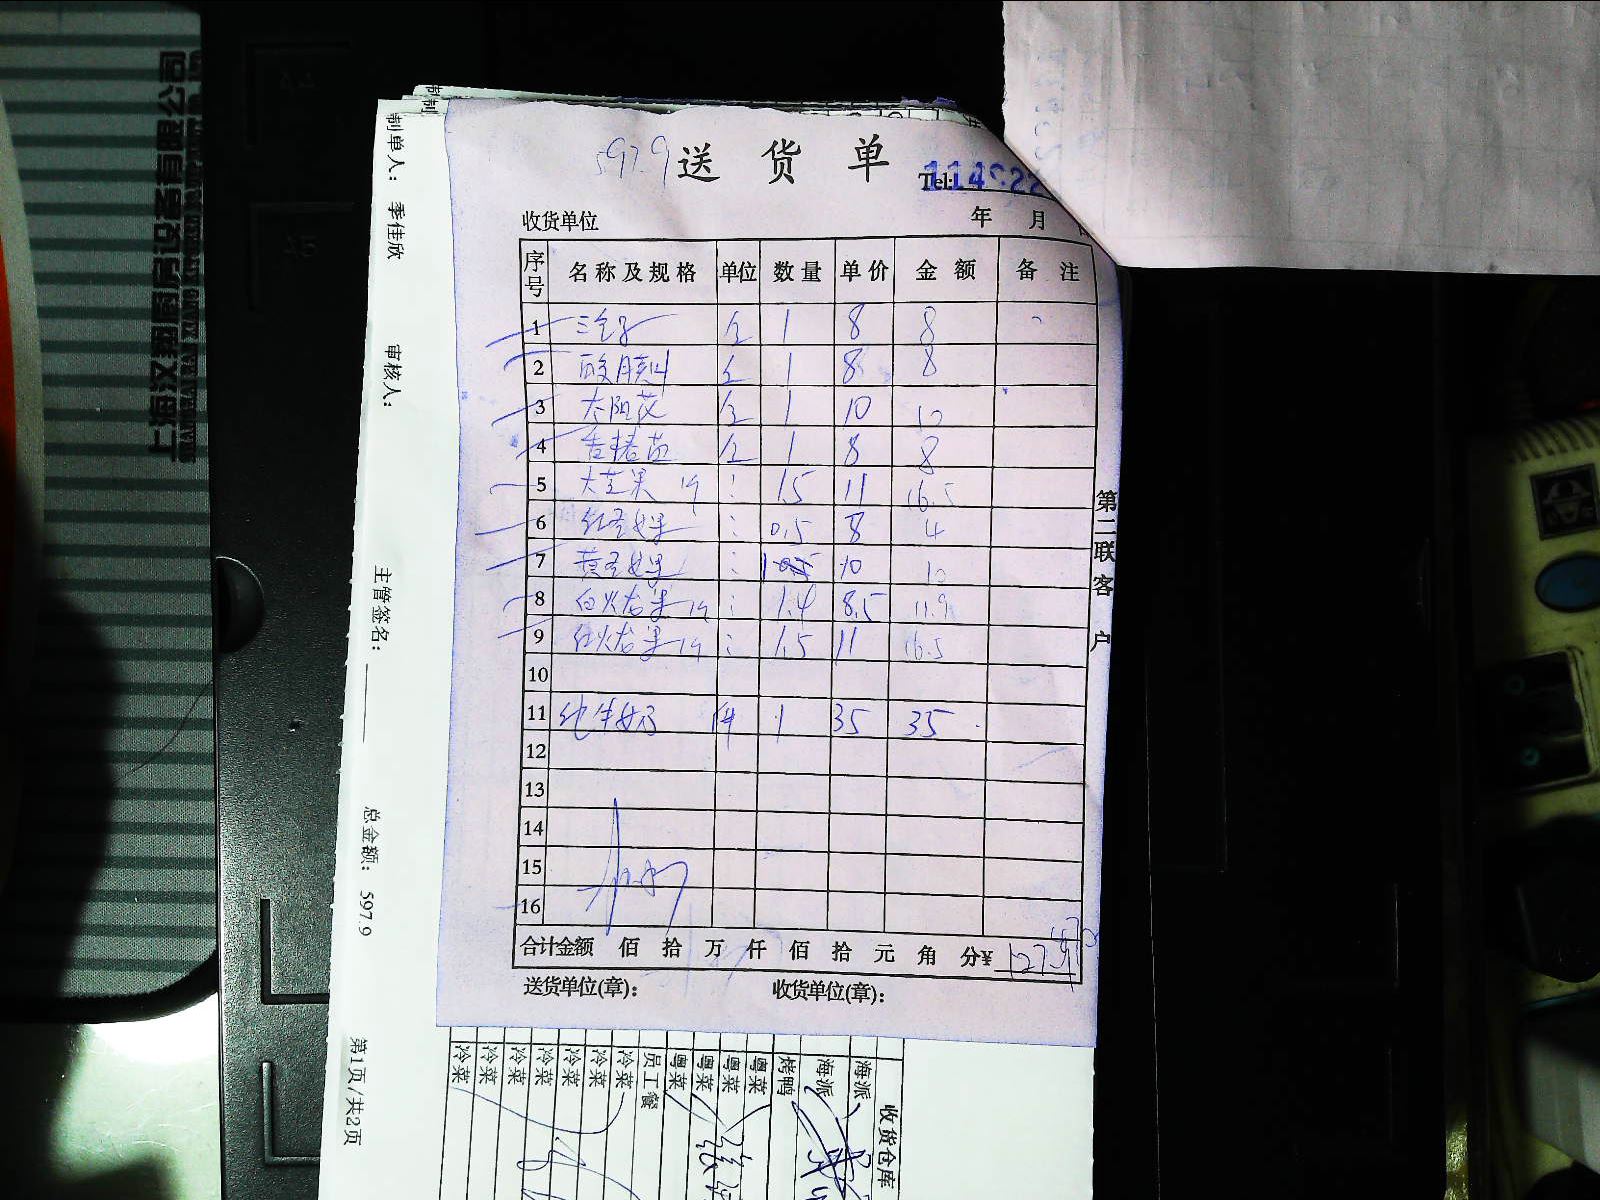 597.9
送货单
Tel:
收货单位 年 月
序号 名称及规格 单位 数量 单价 金额 备注
1 三色 1 8 8
2 酸膜叫 1 8 8
3 太阳花 1 10 10
4 香椿苗 1 8 8
5 大芒果 1.5 11 16.5
6 红圣女果 0.5 8 4
7 黄圣女果 1 10 10
8 白火龙果 1.4 8.5 11.9
9 红火龙果 1.5 11 16.5
10
11 纯牛奶 1件 1 35 35
12
13
14
15
16
合计金额 佰 拾 万 仟 佰 拾 元 角 分¥
送货单位(章): 收货单位(章):
第二联客户
制单人: 季佳欣
审核人:
主管签名:
总金额: 597.9
第1页/共2页
收货仓库
海派
海派
烤鸭
粤菜
粤菜
粤菜
粤菜
员工餐
冷菜
冷菜
冷菜
冷菜
冷菜
冷菜
冷菜
上海汉翔厨房设备有限公司